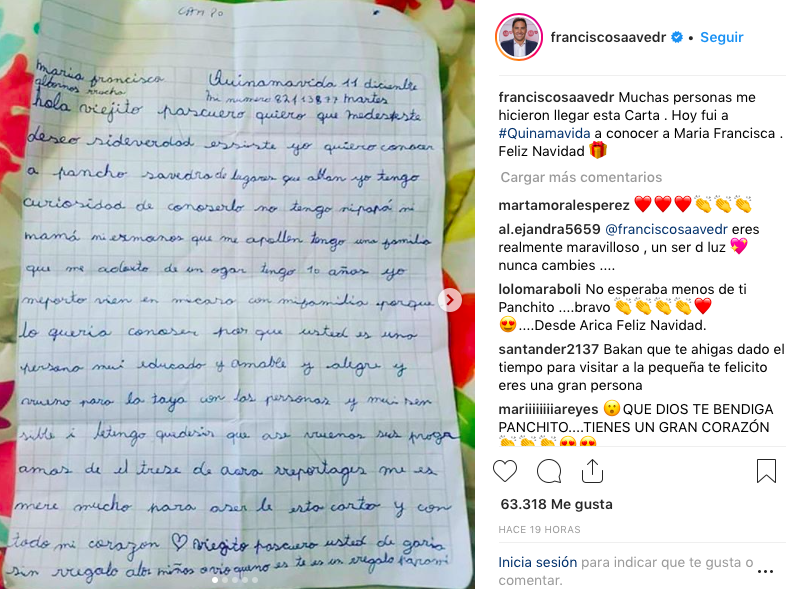 CAMPO
maria francisca Quinamavida 11 diciemble
albornos
mi numero 82113877 martes
hola viejito pascuero quiero que medeseste
deseo sideverdad essiste yo quiero conocer
a pancho savedra de lugares que ablan yo tengo
curiosidad de conoserlo no tengo nipapá ni
mamá niermanos que me apollen tengo una familia
que me adopto de un ogar tengo 10 años yo
meporto vien en micasa con mifamilia porque
lo queria conoser por que usted es una
persona mui educado y amable y alegre y
vrueno para la taya con las personas y mui sen
sible i letengo quedesir que ase vruenos sus progr
amas de el trese de acra rreportages me es
mere mucho para aser le esta carta y con
todo mi corazon ♡ viegito pascuero usted de garia
sin rregalo alos niños avioqueno es te es un rregalo
franciscosaavedr • Seguir
franciscosaavedr Muchas personas me
hicieron llegar esta Carta . Hoy fui a
#Quinamavida a conocer a Maria Francisca .
Feliz Navidad 🎁
Cargar más comentarios
martamoralesperez ❤️❤️❤️👏👏👏
al.ejandra5659 @franciscosaavedr eres
realmente maravilloso , un ser d luz 💖
nunca cambies ....
lolomaraboli No esperaba menos de ti
Panchito ....bravo 👏👏👏👏❤️
😍....Desde Arica Feliz Navidad.
santander2137 Bakan que te ahigas dado el
tiempo para visitar a la pequeña te felicito
eres una gran persona
mariiiiiiiiareyes 😮QUE DIOS TE BENDIGA
PANCHITO....TIENES UN GRAN CORAZÓN
👏👏👏😍😍
63.318 Me gusta
HACE 19 HORAS
Inicia sesión para indicar que te gusta o
comentar.